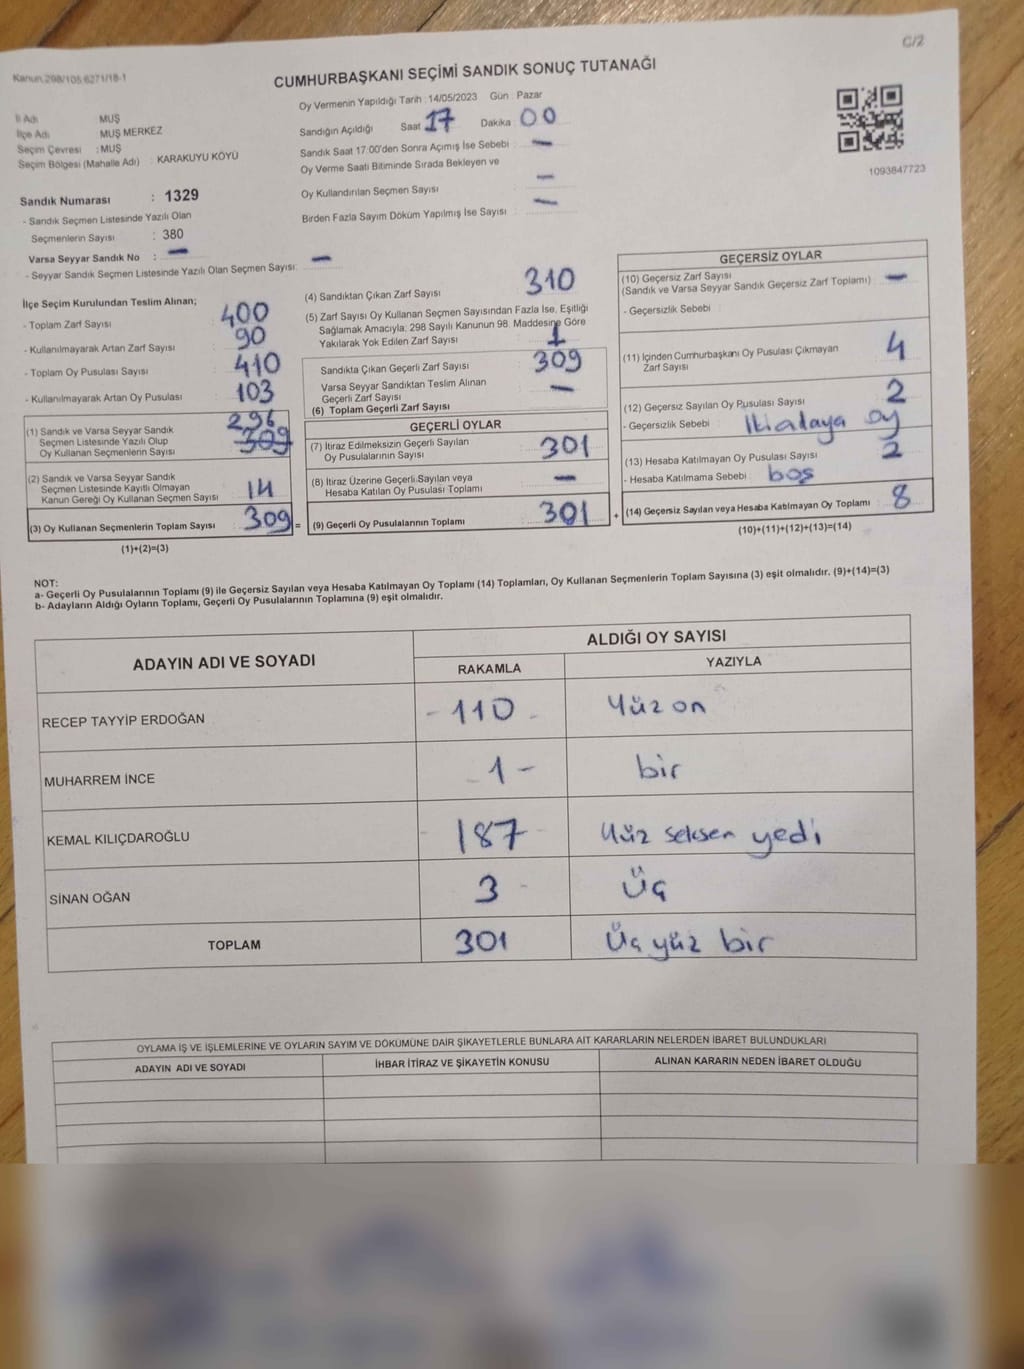 C/2
Kanun:298/105 6271/18-1
CUMHURBAŞKANI SEÇİMİ SANDIK SONUÇ TUTANAĞI
İl Adı : MUŞ
İlçe Adı : MUŞ MERKEZ
Seçim Çevresi : MUŞ
Seçim Bölgesi (Mahalle Adı) : KARAKUYU KÖYÜ
Sandık Numarası : 1329
- Sandık Seçmen Listesinde Yazılı Olan
Seçmenlerin Sayısı : 380
Varsa Seyyar Sandık No : —
- Seyyar Sandık Seçmen Listesinde Yazılı Olan Seçmen Sayısı: —
Oy Vermenin Yapıldığı Tarih : 14/05/2023 Gün : Pazar
Sandığın Açıldığı Saat : 17 Dakika : 00
Sandık Saat 17:00'den Sonra Açımış İse Sebebi : —
Oy Verme Saati Bitiminde Sırada Bekleyen ve
Oy Kullandırılan Seçmen Sayısı : —
Birden Fazla Sayım Döküm Yapılmış İse Sayısı : —
1093847723
İlçe Seçim Kurulundan Teslim Alınan;
- Toplam Zarf Sayısı : 400
- Kullanılmayarak Artan Zarf Sayısı : 90
- Toplam Oy Pusulası Sayısı : 410
- Kullanılmayarak Artan Oy Pusulası : 103
(1) Sandık ve Varsa Seyyar Sandık
Seçmen Listesinde Yazılı Olup
Oy Kullanan Seçmenlerin Sayısı : 296 309
(2) Sandık ve Varsa Seyyar Sandık
Seçmen Listesinde Kayıtlı Olmayan
Kanun Gereği Oy Kullanan Seçmen Sayısı : 14
(3) Oy Kullanan Seçmenlerin Toplam Sayısı : 309 =
(1)+(2)=(3)
(4) Sandıktan Çıkan Zarf Sayısı : 310
(5) Zarf Sayısı Oy Kullanan Seçmen Sayısından Fazla İse, Eşitliği
Sağlamak Amacıyla; 298 Sayılı Kanunun 98. Maddesine Göre
Yakılarak Yok Edilen Zarf Sayısı : 1
Sandıkta Çıkan Geçerli Zarf Sayısı : 309
Varsa Seyyar Sandıktan Teslim Alınan
Geçerli Zarf Sayısı : —
(6) Toplam Geçerli Zarf Sayısı
GEÇERLİ OYLAR
(7) İtiraz Edilmeksizin Geçerli Sayılan
Oy Pusulalarının Sayısı : 301
(8) İtiraz Üzerine Geçerli Sayılan veya
Hesaba Katılan Oy Pusulası Toplamı : —
(9) Geçerli Oy Pusulalarının Toplamı : 301 +
GEÇERSİZ OYLAR
(10) Geçersiz Zarf Sayısı
(Sandık ve Varsa Seyyar Sandık Geçersiz Zarf Toplamı) : —
- Geçersizlik Sebebi :
(11) İçinden Cumhurbaşkanı Oy Pusulası Çıkmayan
Zarf Sayısı : 4
(12) Geçersiz Sayılan Oy Pusulası Sayısı : 2
- Geçersizlik Sebebi : İki adaya oy
(13) Hesaba Katılmayan Oy Pusulası Sayısı : 2
- Hesaba Katılmama Sebebi : boş
(14) Geçersiz Sayılan veya Hesaba Katılmayan Oy Toplamı : 8
(10)+(11)+(12)+(13)=(14)
NOT:
a- Geçerli Oy Pusulalarının Toplamı (9) ile Geçersiz Sayılan veya Hesaba Katılmayan Oy Toplamı (14) Toplamları, Oy Kullanan Seçmenlerin Toplam Sayısına (3) eşit olmalıdır. (9)+(14)=(3)
b- Adayların Aldığı Oyların Toplamı, Geçerli Oy Pusulalarının Toplamına (9) eşit olmalıdır.
ADAYIN ADI VE SOYADI ALDIĞI OY SAYISI
RAKAMLA YAZIYLA
RECEP TAYYİP ERDOĞAN - 110 - Yüz on
MUHARREM İNCE - 1 - bir
KEMAL KILIÇDAROĞLU - 187 - Yüz seksen yedi
SİNAN OĞAN 3 - Üç
TOPLAM 301 Üç yüz bir
OYLAMA İŞ VE İŞLEMLERİNE VE OYLARIN SAYIM VE DÖKÜMÜNE DAİR ŞİKAYETLERLE BUNLARA AİT KARARLARIN NELERDEN İBARET BULUNDUKLARI
ADAYIN ADI VE SOYADI İHBAR İTİRAZ VE ŞİKAYETİN KONUSU ALINAN KARARIN NEDEN İBARET OLDUĞU